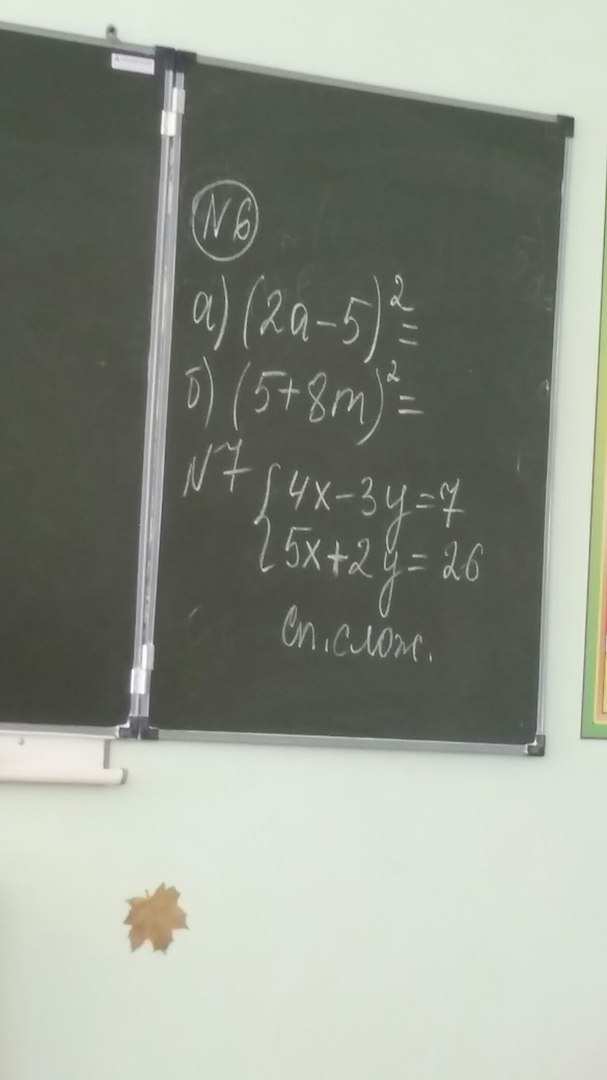 N6
а) (2a-5)²=
б) (5+8m)²=
N7 { 4x-3y=7
5x+2y=26
Сп. слож.